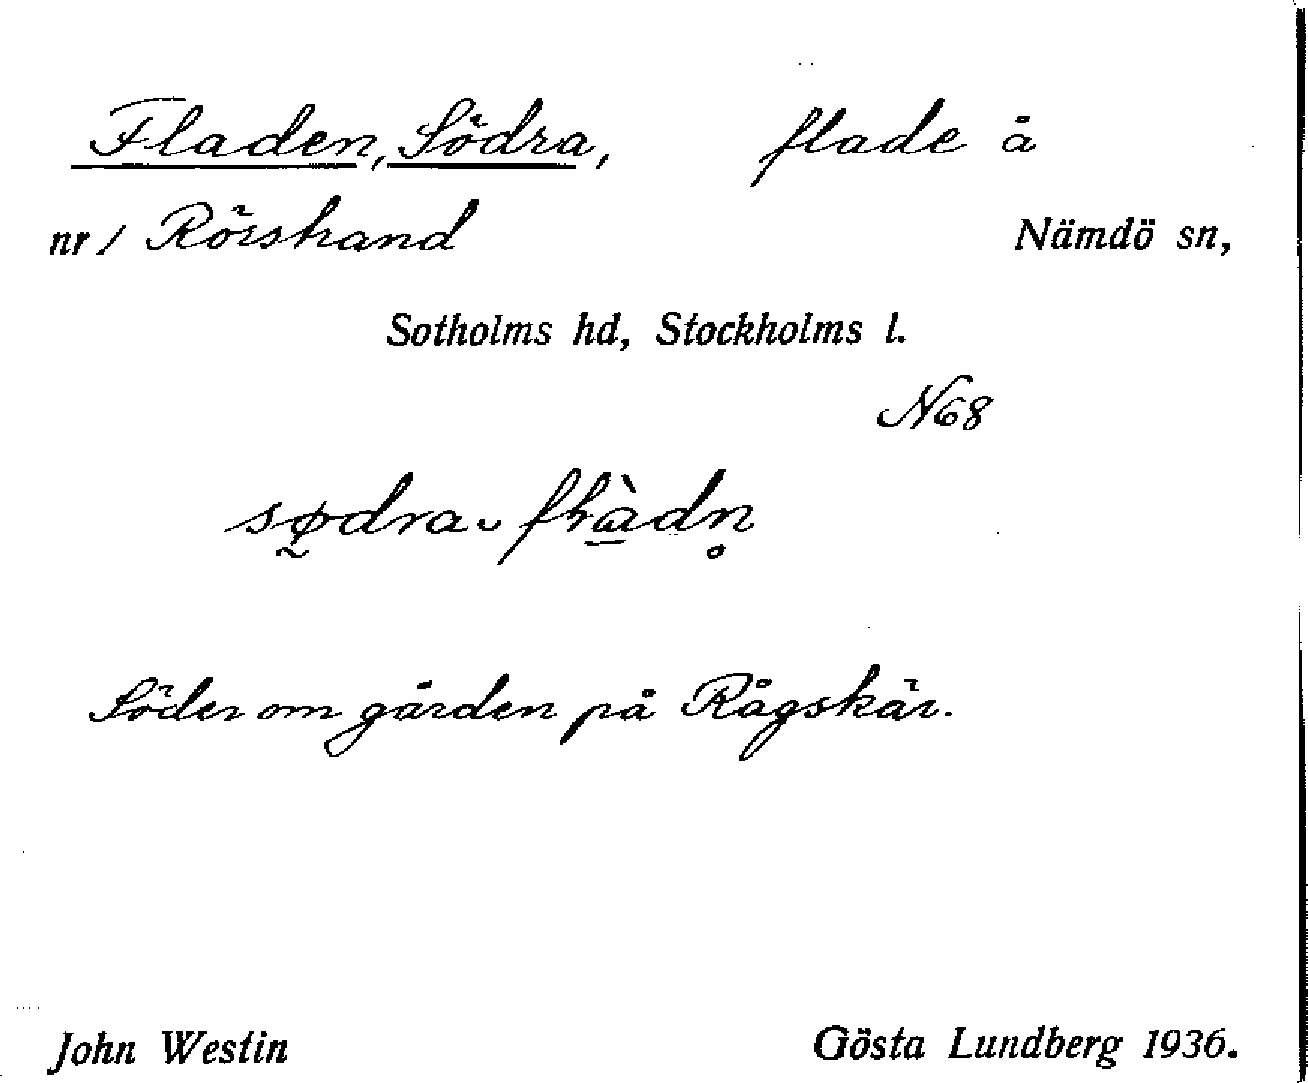 Fladen, Södra, flade å
nr 1 Rörstrand Nämdö sn,
Sotholms hd, Stockholms l.
N68
Söder om gården på Rågskär.
John Westin Gösta Lundberg 1936.